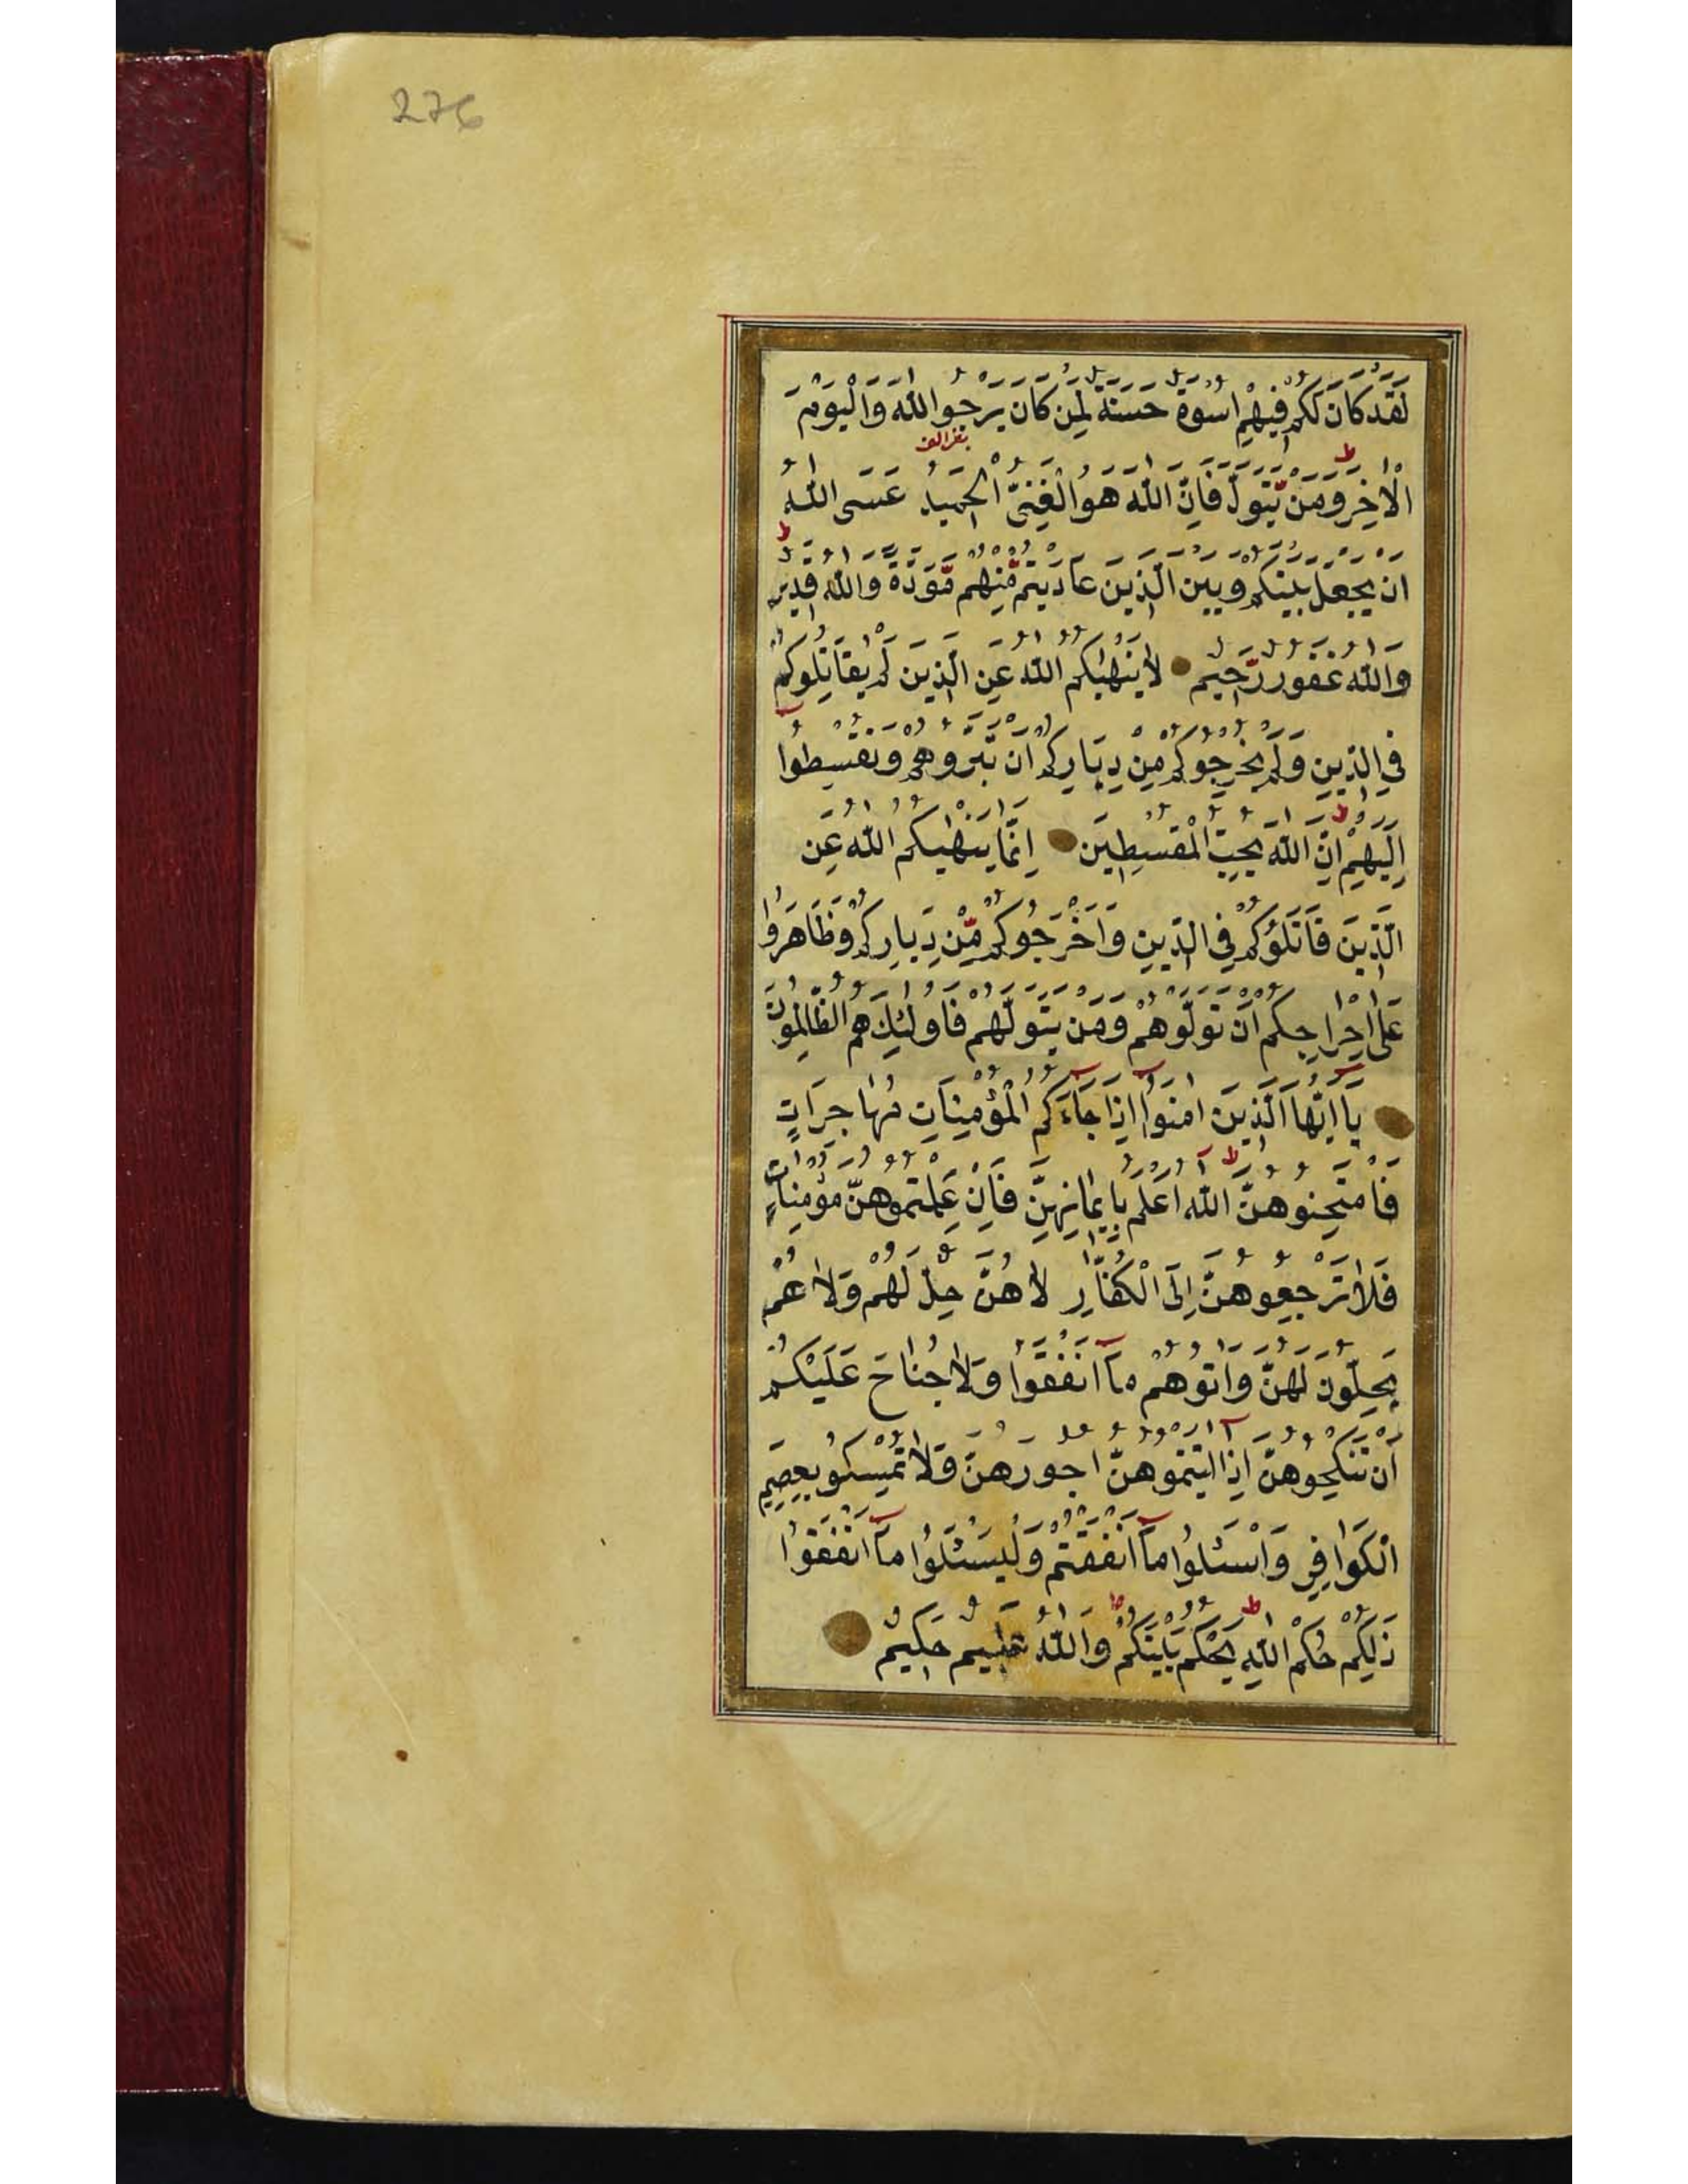 276
لَقَدْ كَانَ لَكُمْ فِيهِمْ اُسْوَةٌ حَسَنَةٌ لِمَنْ كَانَ يَرْجُوا اللّٰهَ وَالْيَوْمَ
الْاٰخِرَ وَمَنْ يَتَوَلَّ فَاِنَّ اللّٰهَ هُوَ الْغَنِىُّ الْحَمِيدُ عَسَى اللّٰهُ
اَنْ يَجْعَلَ بَيْنَكُمْ وَبَيْنَ الَّذِينَ عَادَيْتُمْ مِّنْهُمْ مَّوَدَّةً وَاللّٰهُ قَدِيرٌ
وَاللّٰهُ غَفُورٌ رَّحِيمٌ لَا يَنْهٰيكُمُ اللّٰهُ عَنِ الَّذِينَ لَمْ يُقَاتِلُوكُمْ
فِى الدِّينِ وَلَمْ يُخْرِجُوكُمْ مِنْ دِيَارِكُمْ اَنْ تَبَرُّوهُمْ وَتُقْسِطُوا
اِلَيْهِمْ اِنَّ اللّٰهَ يُحِبُّ الْمُقْسِطِينَ اِنَّمَا يَنْهٰيكُمُ اللّٰهُ عَنِ
الَّذِينَ قَاتَلُوكُمْ فِى الدِّينِ وَاَخْرَجُوكُمْ مِّنْ دِيَارِكُمْ وَظَاهَرُوا
عَلٰى اِخْرَاجِكُمْ اَنْ تَوَلَّوْهُمْ وَمَنْ يَتَوَلَّهُمْ فَاُولٰئِكَ هُمُ الظَّالِمُونَ
يَا اَيُّهَا الَّذِينَ اٰمَنُوا اِذَا جَاءَكُمُ الْمُؤْمِنَاتُ مُهَاجِرَاتٍ
فَامْتَحِنُوهُنَّ اللّٰهُ اَعْلَمُ بِاِيمَانِهِنَّ فَاِنْ عَلِمْتُمُوهُنَّ مُؤْمِنَاتٍ
فَلَا تَرْجِعُوهُنَّ اِلَى الْكُفَّارِ لَا هُنَّ حِلٌّ لَهُمْ وَلَا هُمْ
يَحِلُّونَ لَهُنَّ وَاٰتُوهُمْ مَا اَنْفَقُوا وَلَا جُنَاحَ عَلَيْكُمْ
اَنْ تَنْكِحُوهُنَّ اِذَا اٰتَيْتُمُوهُنَّ اُجُورَهُنَّ وَلَا تُمْسِكُوا بِعِصَمِ
الْكَوَافِرِ وَاسْئَلُوا مَا اَنْفَقْتُمْ وَلْيَسْئَلُوا مَا اَنْفَقُوا
ذٰلِكُمْ حُكْمُ اللّٰهِ يَحْكُمُ بَيْنَكُمْ وَاللّٰهُ عَلِيمٌ حَكِيمٌ